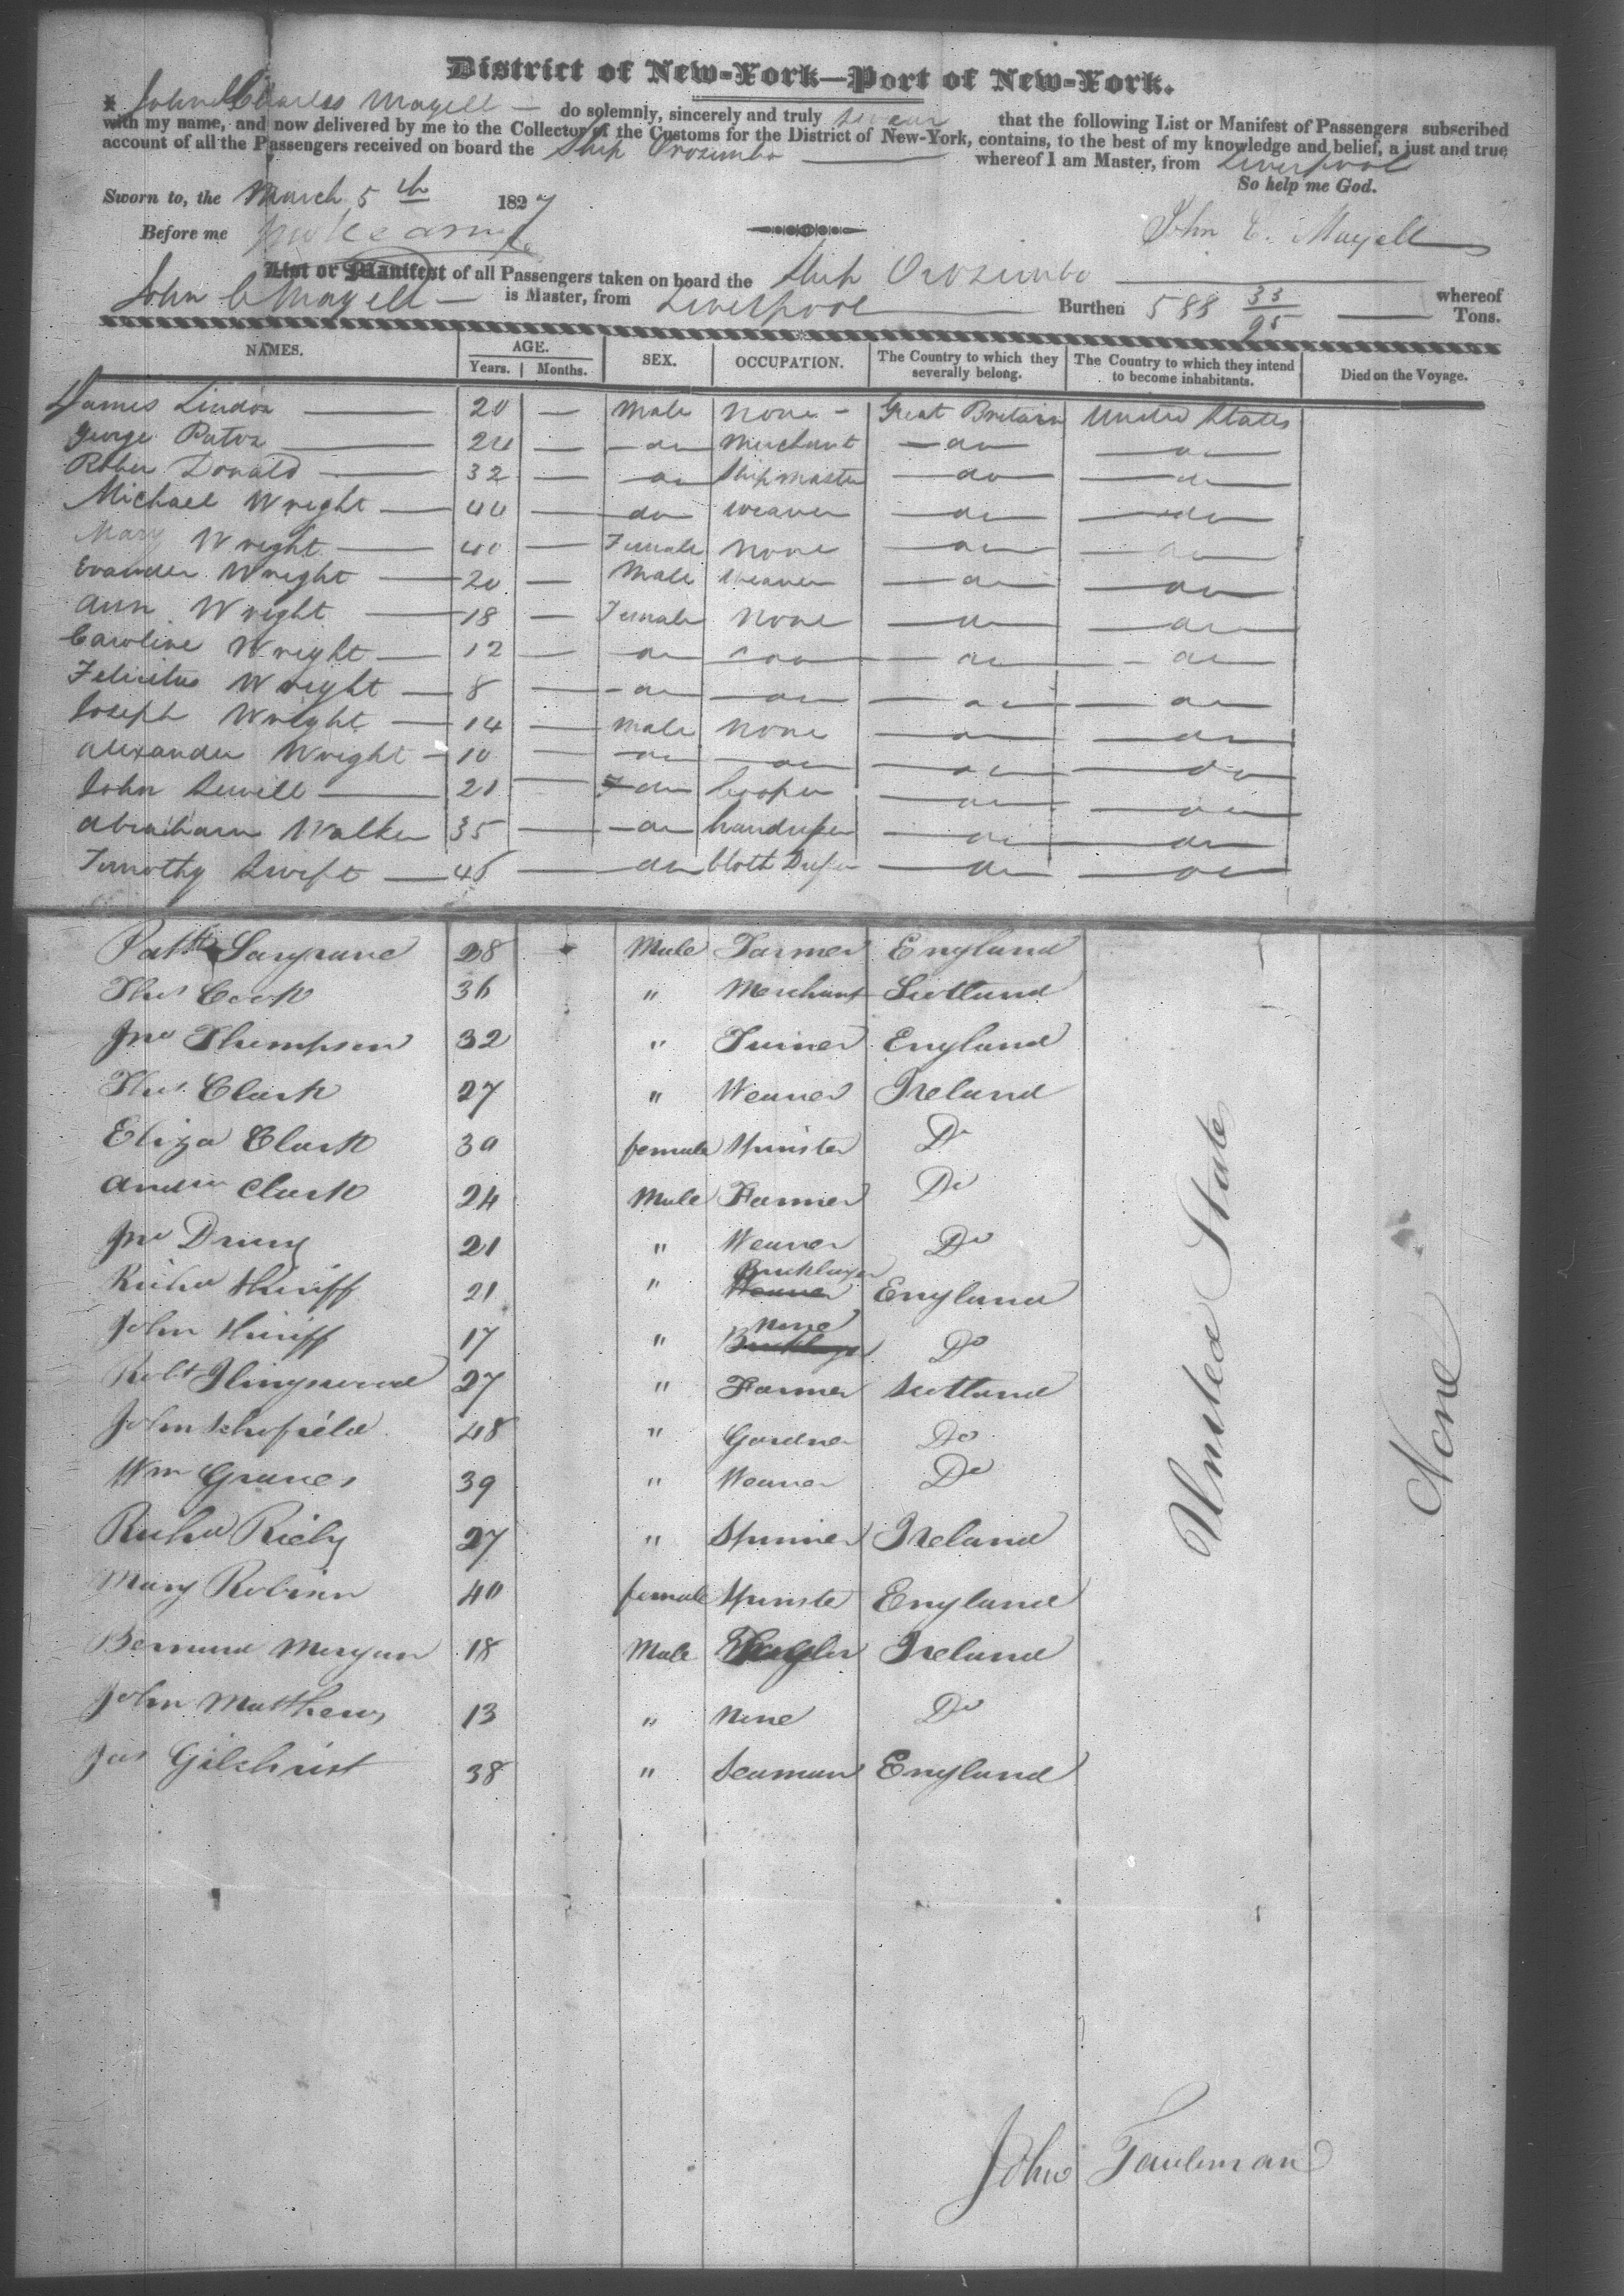 District of New-York—Port of New-York.
I John Charles Mayell — do solemnly, sincerely and truly swear that the following List or Manifest of Passengers subscribed
with my name, and now delivered by me to the Collector of the Customs for the District of New-York, contains, to the best of my knowledge and belief, a just and true
account of all the Passengers received on board the Ship Orozimbo whereof I am Master, from Liverpool
So help me God.
Sworn to, the March 5th 1827
Before me John C. Mayell
List or Manifest of all Passengers taken on board the Ship Orozimbo whereof
John C Mayell — is Master, from Liverpool Burthen 588 33/95 Tons.
NAMES. AGE. Years. Months. SEX. OCCUPATION. The Country to which they severally belong. The Country to which they intend to become inhabitants. Died on the Voyage.
James 20 — Male None — Great Britain United States
George 24 — do Merchant do do
Donald 32 — do Shipmaster do do
Michael Wright 44 — do Weaver do do
Mary Wright 40 — Female None do do
Evander Wright 20 — Male Weaver do do
Ann Wright 18 — Female None do do
Caroline Wright 12 — do do do do
Felicitas Wright 8 — do do do do
Joseph Wright 14 — Male None do do
Alexander Wright 10 — do do do do
John 21 — do Cooper do do
Abraham Walker 35 — do do do
Timothy Swift 45 — do Cloth do do
Patk 28 Male Farmer England
Thos Cook 36 " Merchant Scotland
Jno Thompson 32 " England
Thos Clark 27 " Weaver Ireland
Eliza Clark 30 female Spinster Do
Andw Clark 24 Male Farmer Do
Jno Drury 21 " Weaver Do
Richd Shiriff 21 " Bricklayer Weaver England
John Shiriff 17 " None Bricklayer Do
Robt 27 " Farmer Scotland
John Schofield 48 " Gardner Do
Wm Graves 39 " Weaver Do
Richd Riely 27 " Spinner Ireland
Mary Robison 40 female Spinster England
Bernard Morgan 18 Male Ireland
John Matthews 13 " None Do
Jas Gilchrist 38 " Seaman England
United State
None
John Taubman